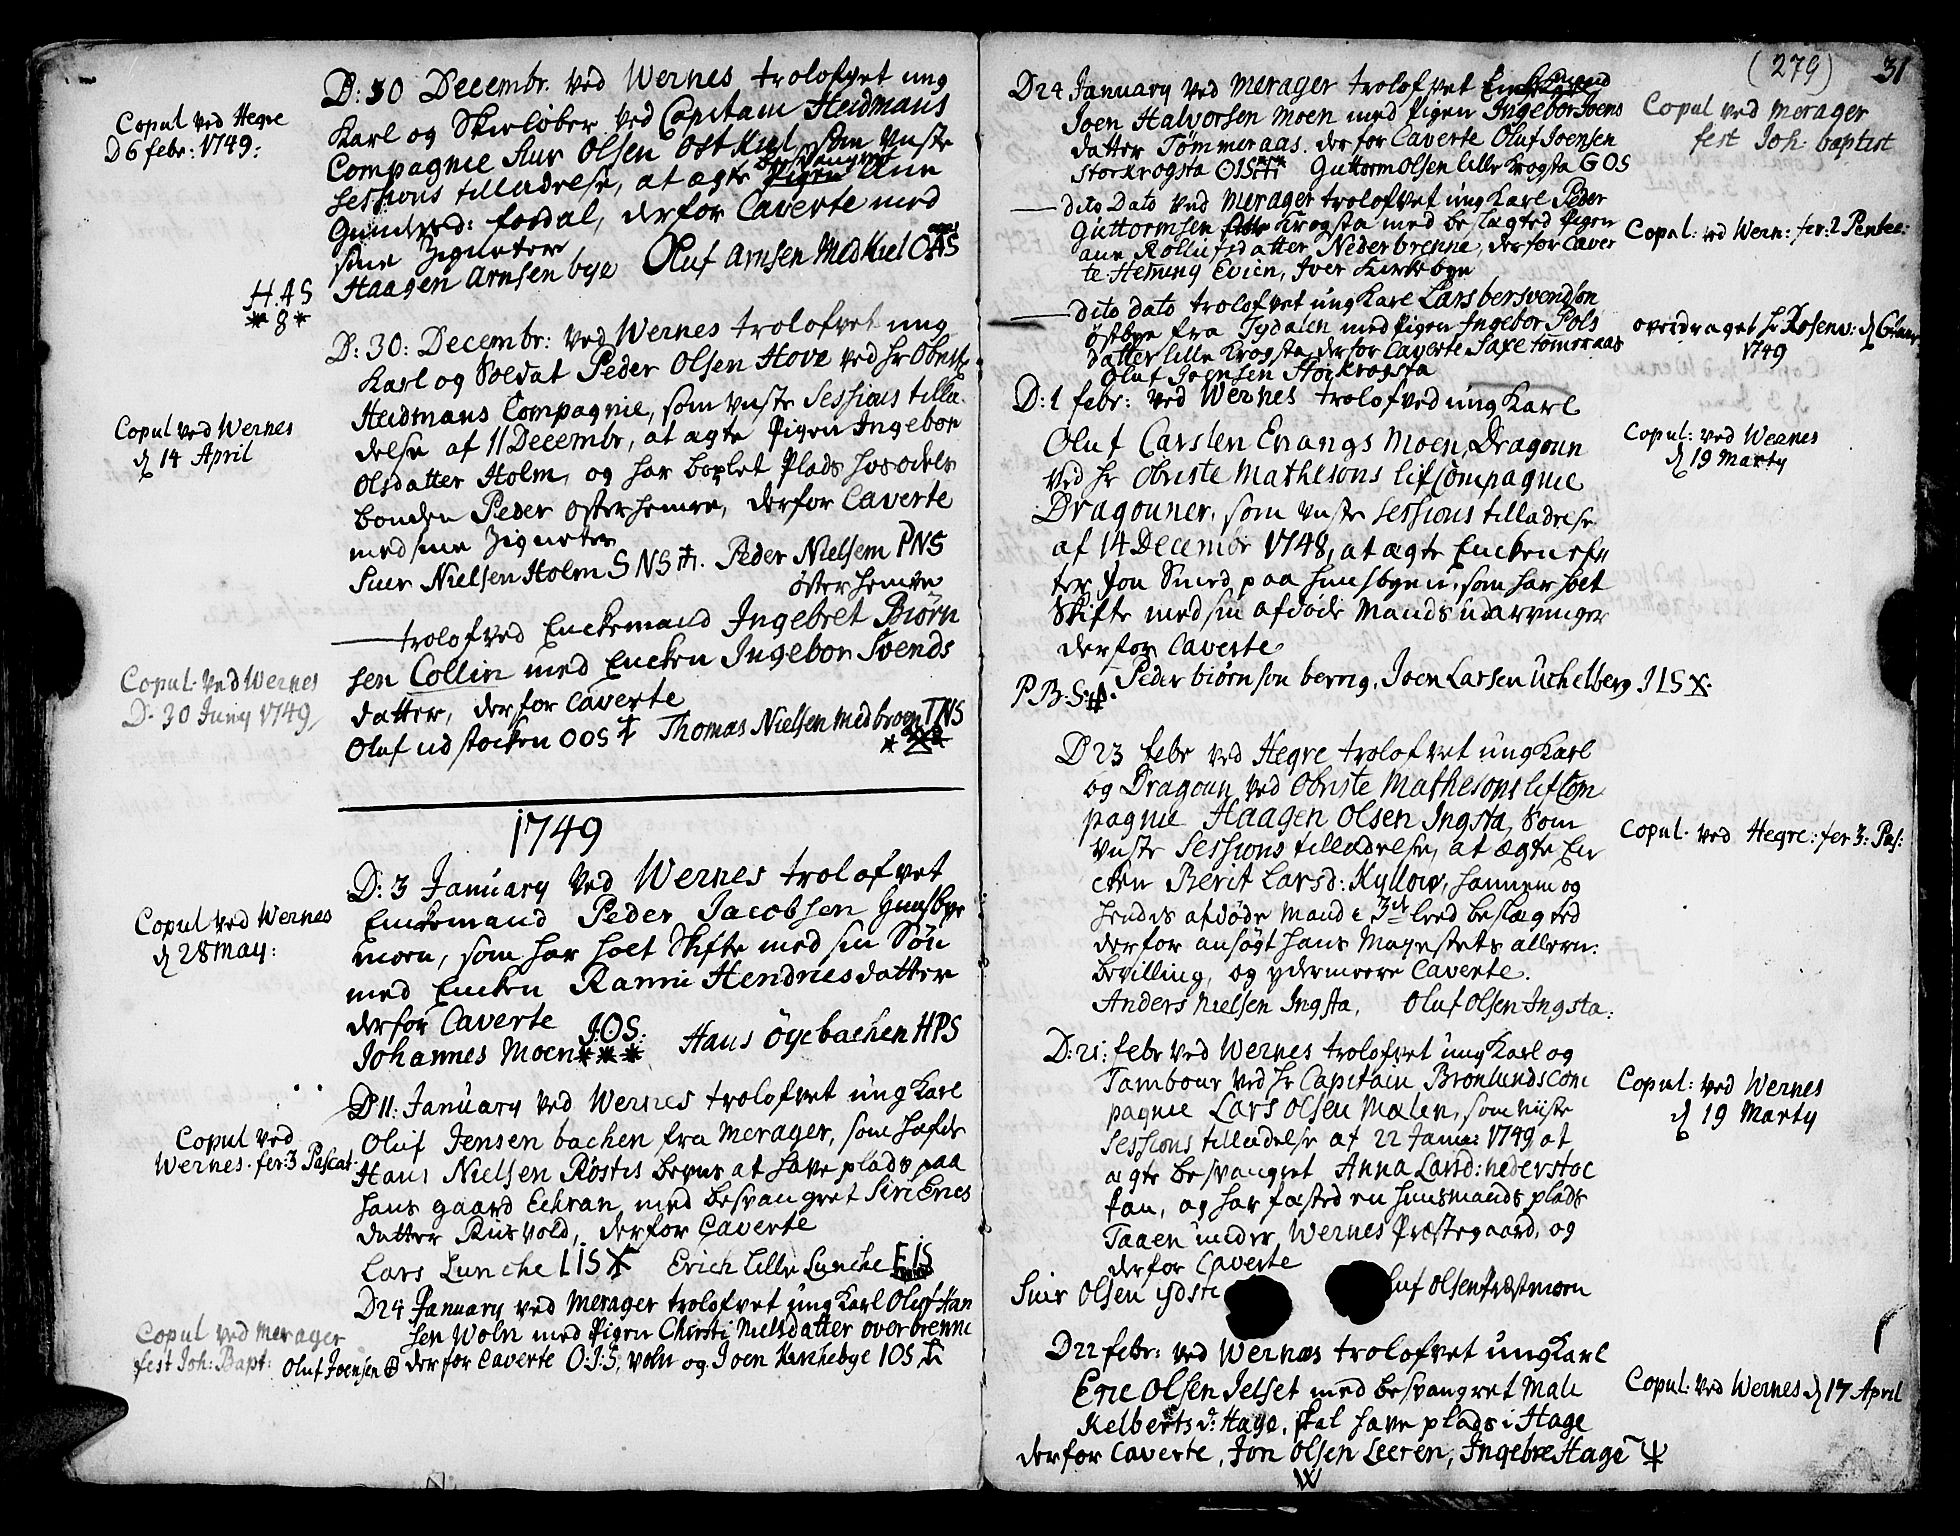 Copul ved Hegre
D 6 febr: 1749:
D: 30 Decembr. ved Wernes trolofvet ung
Karl og Skieløber ved Capitain Heidmans
Compagnie Siur Olsen Ostkiil, som viste
Sessions tilladelse, at ægte besvangret Ane
Gunders: fordal, derfor Caverte med
sine Zigneter
Haagen Arnsen bye Oluf Arnsen Medkiel OAS
H.A.S
* 8 *
D: 30: Decembr: ved Wernes trolofvet ung
Karl og Soldat Peder Olsen Hove ved Hr Obriste
Heidmans Compagnie, som viste Sessions tilla
delse af 11 Decembr, at ægte Pigen Ingebor
Olsdatter Holm, og har boxlet Plads hos odels
bonden Peder osterhemre, derfor Caverte
med sine Zigneter
Siur Nielsen Holm SNS. Peder Nielsen PNS
österhemre
Copul ved Wernes
d 14 April
— trolofved Enckemand Ingebret Biørn
sen Collin med Encken Ingebor Svends
datter, derfor Caverte
Oluf udstocken OOS Thomas Nielsen Medbroen TNS
Copul. ved Wernes
D. 30 Juny 1749
1749
D: 3 January ved Wernes trolofvet
Enckemand Peder Jacobsen Hunsbye
moen, som har holt Skifte med sin Søn
med Encken Ranni Hendricsdatter
derfor Caverte
Johannes Moen J.OS: Hans Öyebachen HPS
Copul ved Wernes
d 28 May:
D 11: January ved Wernes trolofvet ung Karl
Oluf Jensen bachen fra Merager, som hafde
Hans Nielsen Röstes bevis at have plads paa
hans gaard Eckran med besvangret Siri Erics
datter Rusvold, derfor Caverte
Lars Lunche LIS Erich Lille Lunche EIS
Copul ved
Wernes. fer: 3 Pascat
D 24 January ved Merager trolofvet ung Karl Oluf Han
sen Woln med Pigen Chersti Nielsdatter overbrenne
Oluf Joensen derfor Caverte O.J.S, voln og Joen Kirchebye IOS
Copul ved Merager
fest Joh: Bapt:
(279) 31
D 24 January ved Merager trolofvet
Joen Halvorsen Moen med Pigen Ingebor Joens
datter Tømmeraas. derfor Caverte Oluf Joensen
storkrogsta OIS Guttorm Olsen lille Krogsta GOS
Copul ved Merager
fest Joh: baptist
— dito Dato ved Merager trolofvet ung Karl Peder
Guttormsen Krogsta med beslegted Pigen
ane Rollufsdatter Nederbrenne, derfor Caver
te Heming Evien, Iver Kirkebye
Copul: ved Wern: fer: 2 Pentec:
— dito dato trolofvet ung Karl Lars bersvendsön
østbye fra Tydalen med Pigen Ingebor Pols
datter lille Krogsta, derfor Caverte Saxe tømeraas
Oluf Joensen Storkrogsta
1749
D: 1 febr: ved Wernes trolofved ung Karl
Oluf Carsten Evangs Moen, Dragoun
ved Hr Obriste Mathesons lifCompagnie
Dragouner, som viste Sessions tilladelse
af 14 Decembr 1748, at ægte Encken ef
ter Jon Smed paa Hunsbyen, som har holt
Skifte med sin afdöde Mands udarvinger
derfor Caverte
P.B.S: Peder biørnson berrig, Joen Larsen Uchelberg JLS
Copul: ved Wernes
d 19 Marty
D 23 febr ved Hegre trolofvet ung Karl
og Dragoun ved Obriste Mathesons lifCom
pagnie Haagen Olsen Ingsta, som
viste Sessions tilladelse, at ægte En
cken Berit Larsd: Kyllow, hannem og
hendes afdöde Mand i 3de leed beslægted
derfor ansögt hans Mayestets allern:
bevilling, og ydermeere Caverte.
Anders Nielsen Ingsta, Oluf Olsen Ingsta:
Copul. ved Hegre: fer 3: Pas:
D: 21: febr ved Wernes trolofvet ung Karl og
Tambour ved Hr Capitain Bronlunds Com
pagnie Lars Olsen Mælen, som viiste
Sessions tilladelse af 22 Janu: 1749 at
ægte besvangret Anna Larsd: nederstoc
kan, og har fæsted en huusmands plads
Taaen under Wernes Præstegaard, og
derfor Caverte
Siur Olsen ydsti Oluf Olsen Præstmoen
Copul: ved Wernes
d 19 Marty
D 22 febr: ved Wernes trolofvet ung Karl
Eric Olsen Jelset med besvangret Mali
Kelbertsd: Hage, skal have plads i Hage
derfor Caverte, Jon Olsen Leeren, Ingebre Hage
Copul. ved Wernes d 17 April